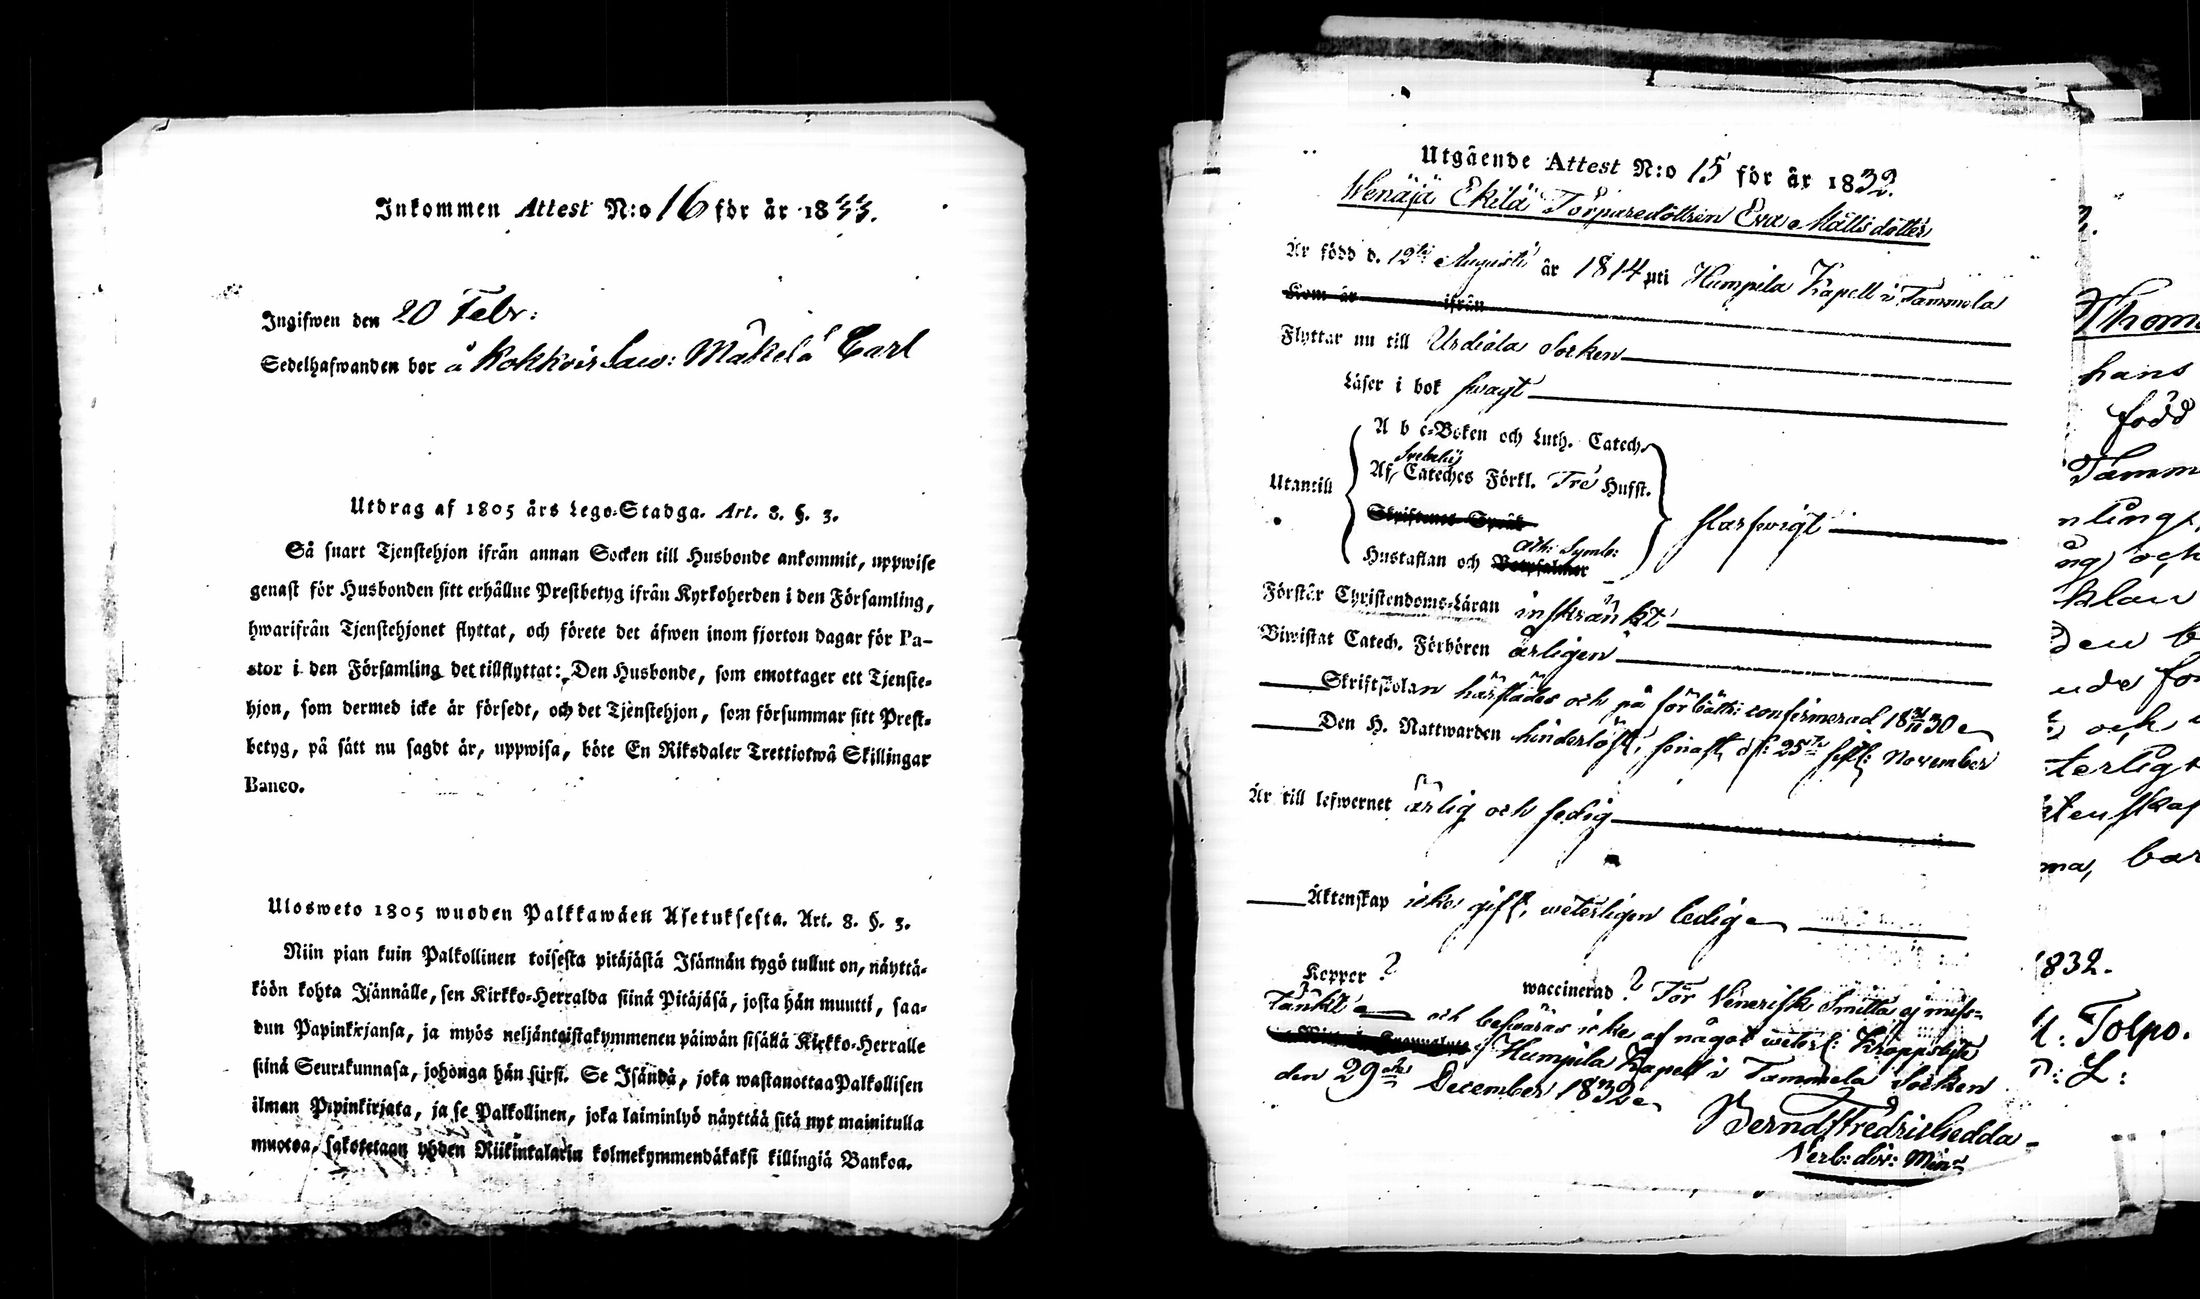 Inkommen Attest N:o 16 för år 1833.
Ingifwen den 20 Febr:
Sedelhafwanden bor å Kokkois Mäkelä Carl
Utdrag af 1805 års Lego-Stadga. Art. 8. §. 3.
Så snart Tjenstehjon ifrån annan Socken till Husbonde ankommit, uppwise
genast för Husbonden sitt erhållne Prestbetyg ifrån Kyrkoherden i den Församling,
hwarifrån Tjenstehjonet flyttat, och förete det äfwen inom fjorton dagar för Pa-
stor i den Församling det tillflyttat: Den Husbonde, som emottager ett Tjenste-
hjon, som dermed icke är försedt, och det Tjenstehjon, som försummar sitt Prest-
betyg, på sätt nu sagdt är, uppwisa, böte En Riksdaler Trettiotwå Skillingar
Banco.
Ulosweto 1805 wuoden Palkkawäen Asetuksesta. Art. 8. §. 3.
Niin pian kuin Palkollinen toisesta pitäjästä Isännän tygö tullut on, näyttä-
köön kohta Isännälle, sen Kirkko-Herralda siinä Pitäjäsä, josta hän muutti, saa-
dun Papinkirjansa, ja myös neljäntoistakymmenen päiwän sisällä Kirkko-Herralle
siinä Seurakunnasa, johonga hän siirsi. Se Isändä, joka wastanottaa Palkollisen
ilman Papinkirjata, ja se Palkollinen, joka laiminlyö näyttää sitä nyt mainitulla
muotoa, sakotetaan yhden Riikintalarin kolmekymmendäkaksi killingiä Bankoa.
Utgående Attest N:o 15 för år 1832.
Wenäjä Ekilä Torparedottren Eva Mattsdotter
Är född d. 12te Augusti år 1814 uti Humpila Kapell i Tammela
Kom år ifrån
Flyttar nu till Urdiala Socken
Läser i bok swagt
A b c-Boken och Luth. Catech.
Utantill
Af Svebelii Cateches Förkl. Tre Hufst.
Skriftenes Språk
Hustaflan och Botpsalmer Ath: Symb:
slarfwigt
Förstår Christendoms-Läran inskränkt
Biwistat Catech. Förhören årligen
Skriftskolan härstädes och på förbättr: confirmerad 1830
Den H. Nattwarden hinderlöst, senast d: 25te sistl: November
Är till lefwernet ärlig och sedig
Äktenskap icke gift, weterligen ledig
Kopper? waccinerad? För Venerisk Smitta ej miss-
tänkt och beswäras icke af något weterl: Kroppslyte
Humpila Kapell i Tammela Socken
den 29de December 1832
Bernd Fredric Hedda
Verb: div: Min:
Thom
hans
född
Tamm
och
den
terligt
bar
1832.
Tolpo.